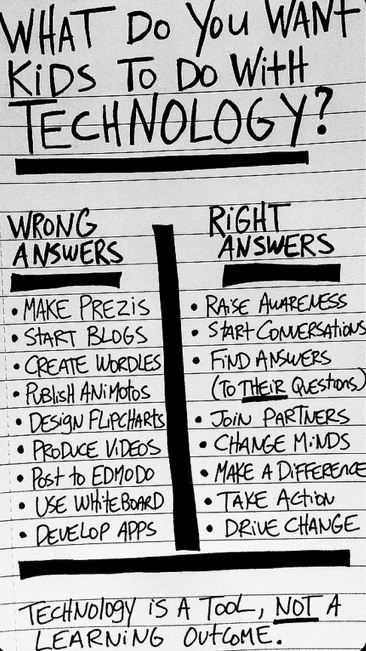 WHAT DO YOU WANT
KiDS TO DO WitH
TECHNOLOGY?
WRONG
ANSWERS
• MAKE PREZiS
• START BLOGS
• CREATE WORDLES
• PUBLiSH ANiMOTOS
• DESiGN FLiPCHARTS
• PRODUCE ViDEOS
• POST TO EDMODO
• USE WHiTEBOARD
• DEVELOP APPS
RiGHT
ANSWERS
• RAiSE AWARENESS
• StARt CONVERSATiONS
• FiND ANSWERS
(TO THEiR QUESTiONS)
• JOiN PARTNERS
• CHANGE MiNDS
• MAKE A DiFFERENCE
• TAKE ACTiON
• DRiVE CHANGE
TECHNOLOGY iS A TOOL, NOT A
LEARNiNG OUTCOME.